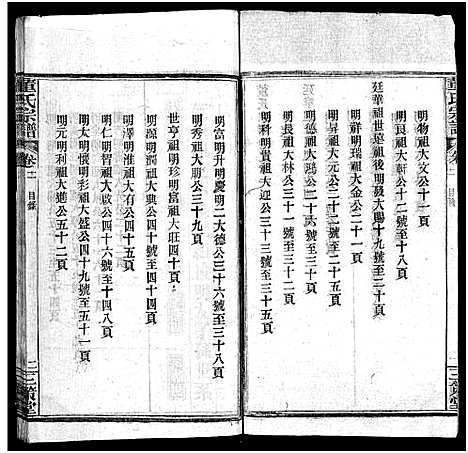 董氏宗譜
卷二
目錄
明物祖大文公十二頁
明良祖大軒公十七號至十八頁
廷華祖世蕃祖後明發大賜十九號至二十頁
明祥明瑞祖大金公二十一頁
明昇祖大元公二十二號至二十三頁
明德祖大鴻公二十四號至三十頁
明長祖大林公三十一號至三十二頁
明科明貴祖大興公三十三號至三十五頁
董氏宗譜
卷二
目錄
明富明升明慶明二大德公三十六號至三十八頁
明秀祖大朋公三十九頁
世亨祖明珍明富祖大莊四十頁
明源明潤祖大典公四十號至四十四頁
明澤明淮祖大有公四十五頁
明仁明智祖大啟公四十六號至四十八頁
明太明懷明彩祖大盛公四十九號至五十一頁
明元明利祖大進公五十二頁
二
三策堂